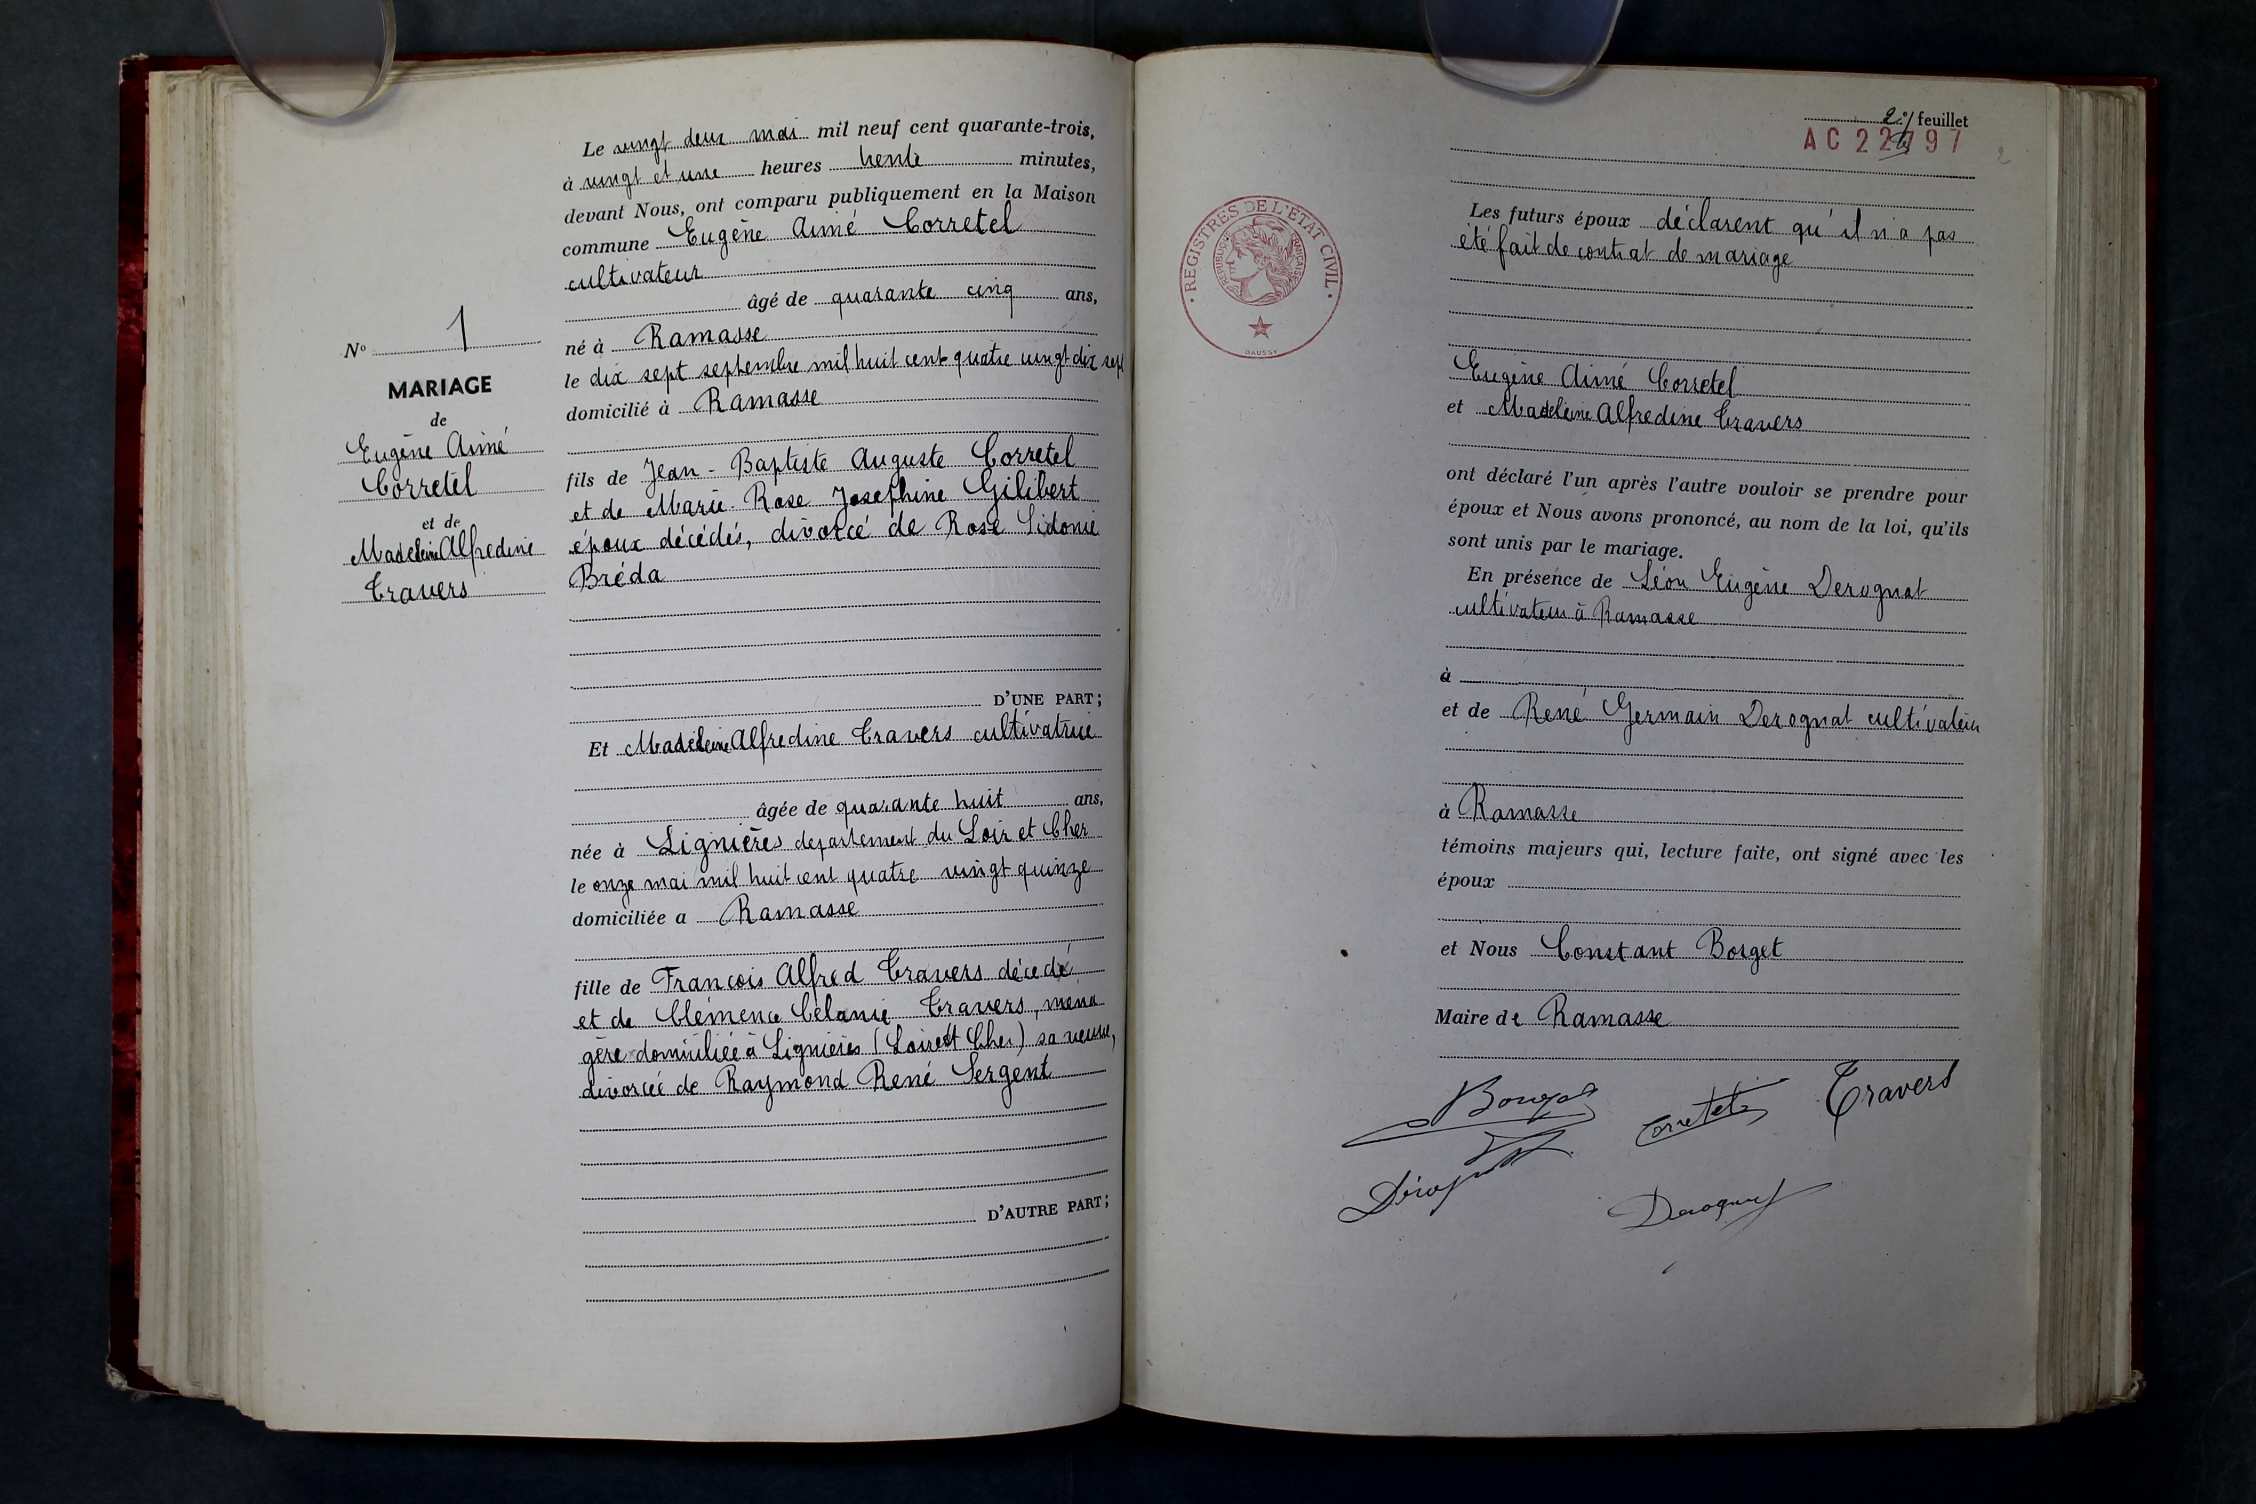 Le vingt deux mai mil neuf cent quarante-trois,
à vingt et une heures trente minutes,
devant Nous, ont comparu publiquement en la Maison
commune Eugène Aimé Corretel
cultivateur
âgé de quarante cinq ans,
né à Ramasse
le dix sept septembre mil huit cent quatre vingt dix sept
domicilié à Ramasse
fils de Jean-Baptiste Auguste Corretel
et de Marie-Rose Josephine Gilibert
époux décédés, divorcé de Rose Sidonie
Bréda
D'UNE PART;
Et Madeleine Alfredine Travers cultivatrice
âgée de quarante huit ans,
née à Lignières departement du Loir et Cher
le onze mai mil huit cent quatre vingt quinze
domiciliée a Ramasse
fille de François Alfred Travers décedé
et de Clémence Célanie Travers, ména
gère domiciliée à Lignières (Loir et Cher) sa veuve,
divorcée de Raymond René Sergent
D'AUTRE PART;
Nº 1
MARIAGE
de
Eugène Aimé
Corretel
et de
Madeleine Alfredine
Travers
2e feuillet
AC 22797
2
REGISTRES DE L'ÉTAT CIVIL
RÉPUBLIQUE FRANÇAISE
DAUSSY
Les futurs époux déclarent qu'il n'a pas
été fait de contrat de mariage
Eugène Aimé Corretel
et Madeleine Alfredine Travers
ont déclaré l'un après l'autre vouloir se prendre pour
époux et Nous avons prononcé, au nom de la loi, qu'ils
sont unis par le mariage.
En présence de Léon Eugène Derognat
cultivateur à Ramasse
à
et de René Germain Derognat cultivateur
à Ramasse
témoins majeurs qui, lecture faite, ont signé avec les
époux
et Nous Constant Borget
Maire de Ramasse
Corretel
Travers
Derognat